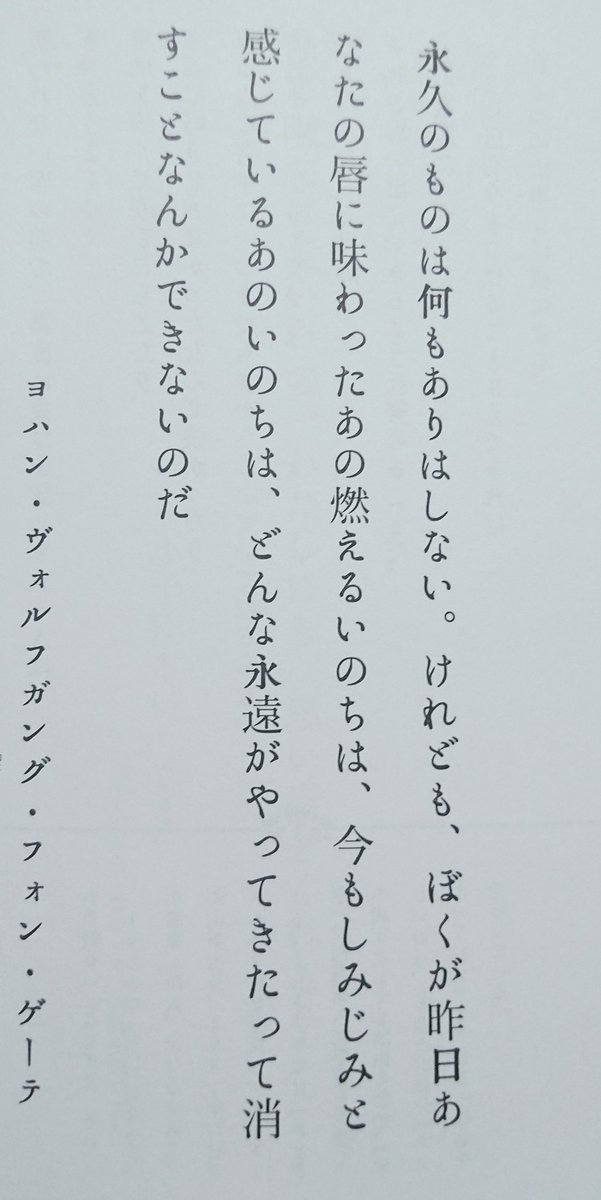 永久のものは何もありはしない。けれども、ぼくが昨日あ
なたの唇に味わったあの燃えるいのちは、今もしみじみと
感じているあのいのちは、どんな永遠がやってきたって消
すことなんかできないのだ
ヨハン・ヴォルフガング・フォン・ゲーテ